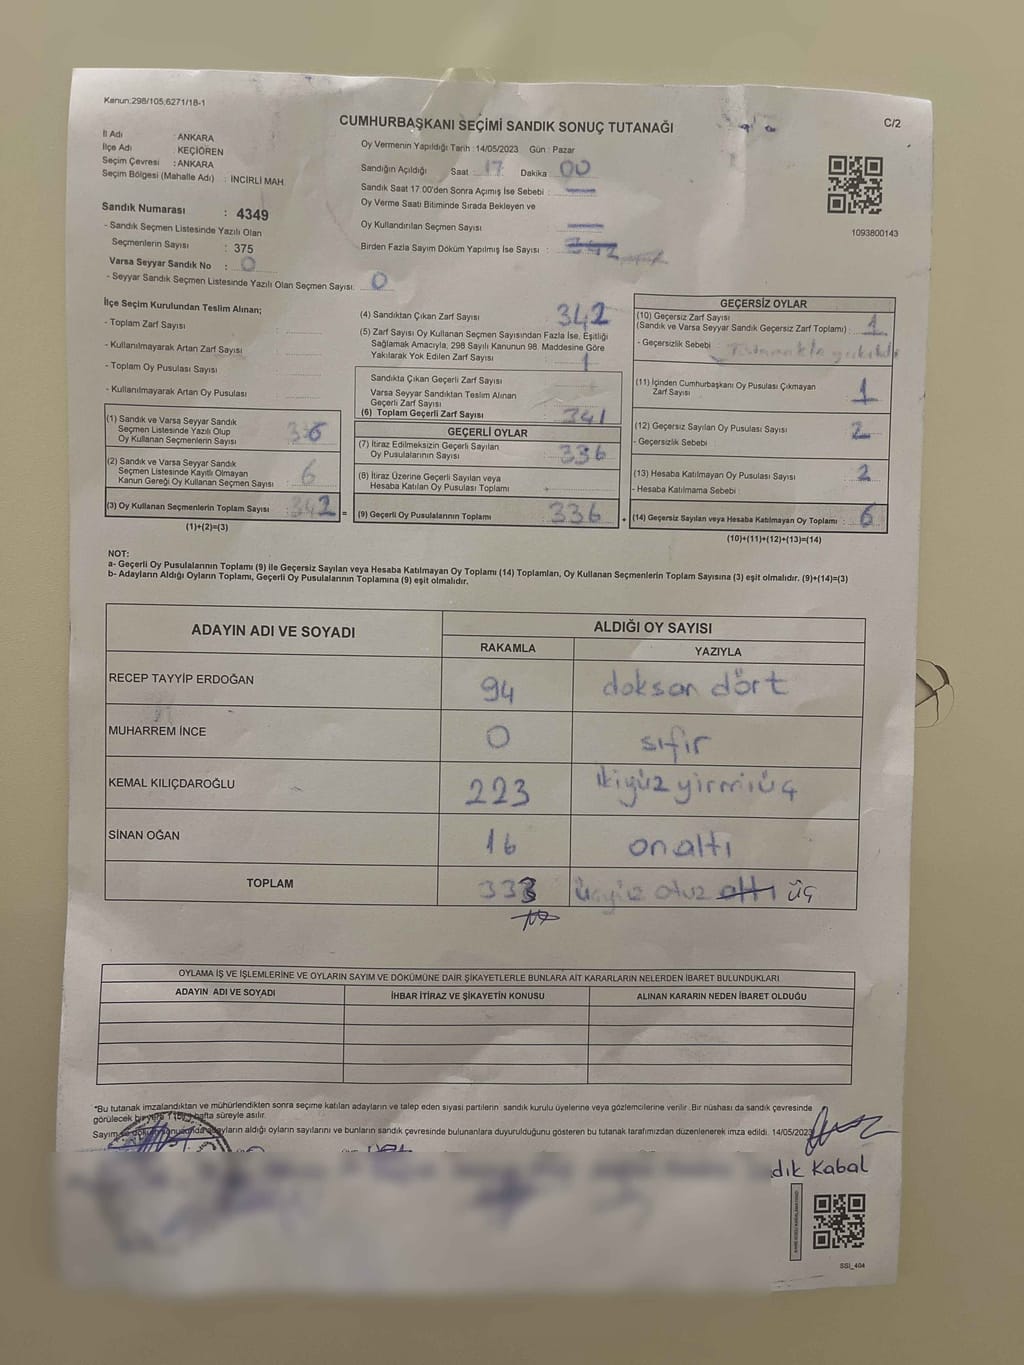 Kanun:298/105;6271/18-1
CUMHURBAŞKANI SEÇİMİ SANDIK SONUÇ TUTANAĞI
C/2
İl Adı : ANKARA
İlçe Adı : KEÇİÖREN
Seçim Çevresi : ANKARA
Seçim Bölgesi (Mahalle Adı) : İNCİRLİ MAH.
Sandık Numarası : 4349
- Sandık Seçmen Listesinde Yazılı Olan
Seçmenlerin Sayısı : 375
Varsa Seyyar Sandık No : 0
- Seyyar Sandık Seçmen Listesinde Yazılı Olan Seçmen Sayısı: 0
Oy Vermenin Yapıldığı Tarih : 14/05/2023 Gün : Pazar
Sandığın Açıldığı Saat 17 Dakika 00
Sandık Saat 17.00'den Sonra Açımış İse Sebebi :
Oy Verme Saati Bitiminde Sırada Bekleyen ve
Oy Kullandırılan Seçmen Sayısı :
Birden Fazla Sayım Döküm Yapılmış İse Sayısı : 342
1093800143
İlçe Seçim Kurulundan Teslim Alınan;
- Toplam Zarf Sayısı
- Kullanılmayarak Artan Zarf Sayısı
- Toplam Oy Pusulası Sayısı
- Kullanılmayarak Artan Oy Pusulası
(1) Sandık ve Varsa Seyyar Sandık
Seçmen Listesinde Yazılı Olup
Oy Kullanan Seçmenlerin Sayısı : 336
(2) Sandık ve Varsa Seyyar Sandık
Seçmen Listesinde Kayıtlı Olmayan
Kanun Gereği Oy Kullanan Seçmen Sayısı : 6
(3) Oy Kullanan Seçmenlerin Toplam Sayısı : 342
(1)+(2)=(3)
(4) Sandıktan Çıkan Zarf Sayısı : 342
(5) Zarf Sayısı Oy Kullanan Seçmen Sayısından Fazla İse, Eşitliği
Sağlamak Amacıyla, 298 Sayılı Kanunun 98. Maddesine Göre
Yakılarak Yok Edilen Zarf Sayısı : 1
Sandıkta Çıkan Geçerli Zarf Sayısı :
Varsa Seyyar Sandıktan Teslim Alınan
Geçerli Zarf Sayısı :
(6) Toplam Geçerli Zarf Sayısı : 341
GEÇERLİ OYLAR
(7) İtiraz Edilmeksizin Geçerli Sayılan
Oy Pusulalarının Sayısı : 336
(8) İtiraz Üzerine Geçerli Sayılan veya
Hesaba Katılan Oy Pusulası Toplamı :
= (9) Geçerli Oy Pusulalarının Toplamı : 336
GEÇERSİZ OYLAR
(10) Geçersiz Zarf Sayısı
(Sandık ve Varsa Seyyar Sandık Geçersiz Zarf Toplamı) : 1
- Geçersizlik Sebebi :
(11) İçinden Cumhurbaşkanı Oy Pusulası Çıkmayan
Zarf Sayısı : 1
(12) Geçersiz Sayılan Oy Pusulası Sayısı : 2
- Geçersizlik Sebebi :
(13) Hesaba Katılmayan Oy Pusulası Sayısı : 2
- Hesaba Katılmama Sebebi :
+ (14) Geçersiz Sayılan veya Hesaba Katılmayan Oy Toplamı : 6
(10)+(11)+(12)+(13)=(14)
NOT:
a- Geçerli Oy Pusulalarının Toplamı (9) ile Geçersiz Sayılan veya Hesaba Katılmayan Oy Toplamı (14) Toplamları, Oy Kullanan Seçmenlerin Toplam Sayısına (3) eşit olmalıdır. (9)+(14)=(3)
b- Adayların Aldığı Oyların Toplamı, Geçerli Oy Pusulalarının Toplamına (9) eşit olmalıdır.
ADAYIN ADI VE SOYADI
ALDIĞI OY SAYISI
RAKAMLA YAZIYLA
RECEP TAYYİP ERDOĞAN 94 doksan dört
MUHARREM İNCE 0 sıfır
KEMAL KILIÇDAROĞLU 223 ikiyüz yirmiüç
SİNAN OĞAN 16 onaltı
TOPLAM 333 üçyüz otuz altı üç
OYLAMA İŞ VE İŞLEMLERİNE VE OYLARIN SAYIM VE DÖKÜMÜNE DAİR ŞİKAYETLERLE BUNLARA AİT KARARLARIN NELERDEN İBARET BULUNDUKLARI
ADAYIN ADI VE SOYADI İHBAR İTİRAZ VE ŞİKAYETİN KONUSU ALINAN KARARIN NEDEN İBARET OLDUĞU
*Bu tutanak imzalandıktan ve mühürlendikten sonra seçime katılan adayların ve talep eden siyasi partilerin sandık kurulu üyelerine veya gözlemcilerine verilir. Bir nüshası da sandık çevresinde
görülecek bir yere 1 (bir) hafta süreyle asılır.
Sayım ve döküm sonucunda adayların aldığı oyların sayılarını ve bunların sandık çevresinde bulunanlara duyurulduğunu gösteren bu tutanak tarafımızdan düzenlenerek imza edildi. 14/05/2023
dık Kabal
SSİ_404